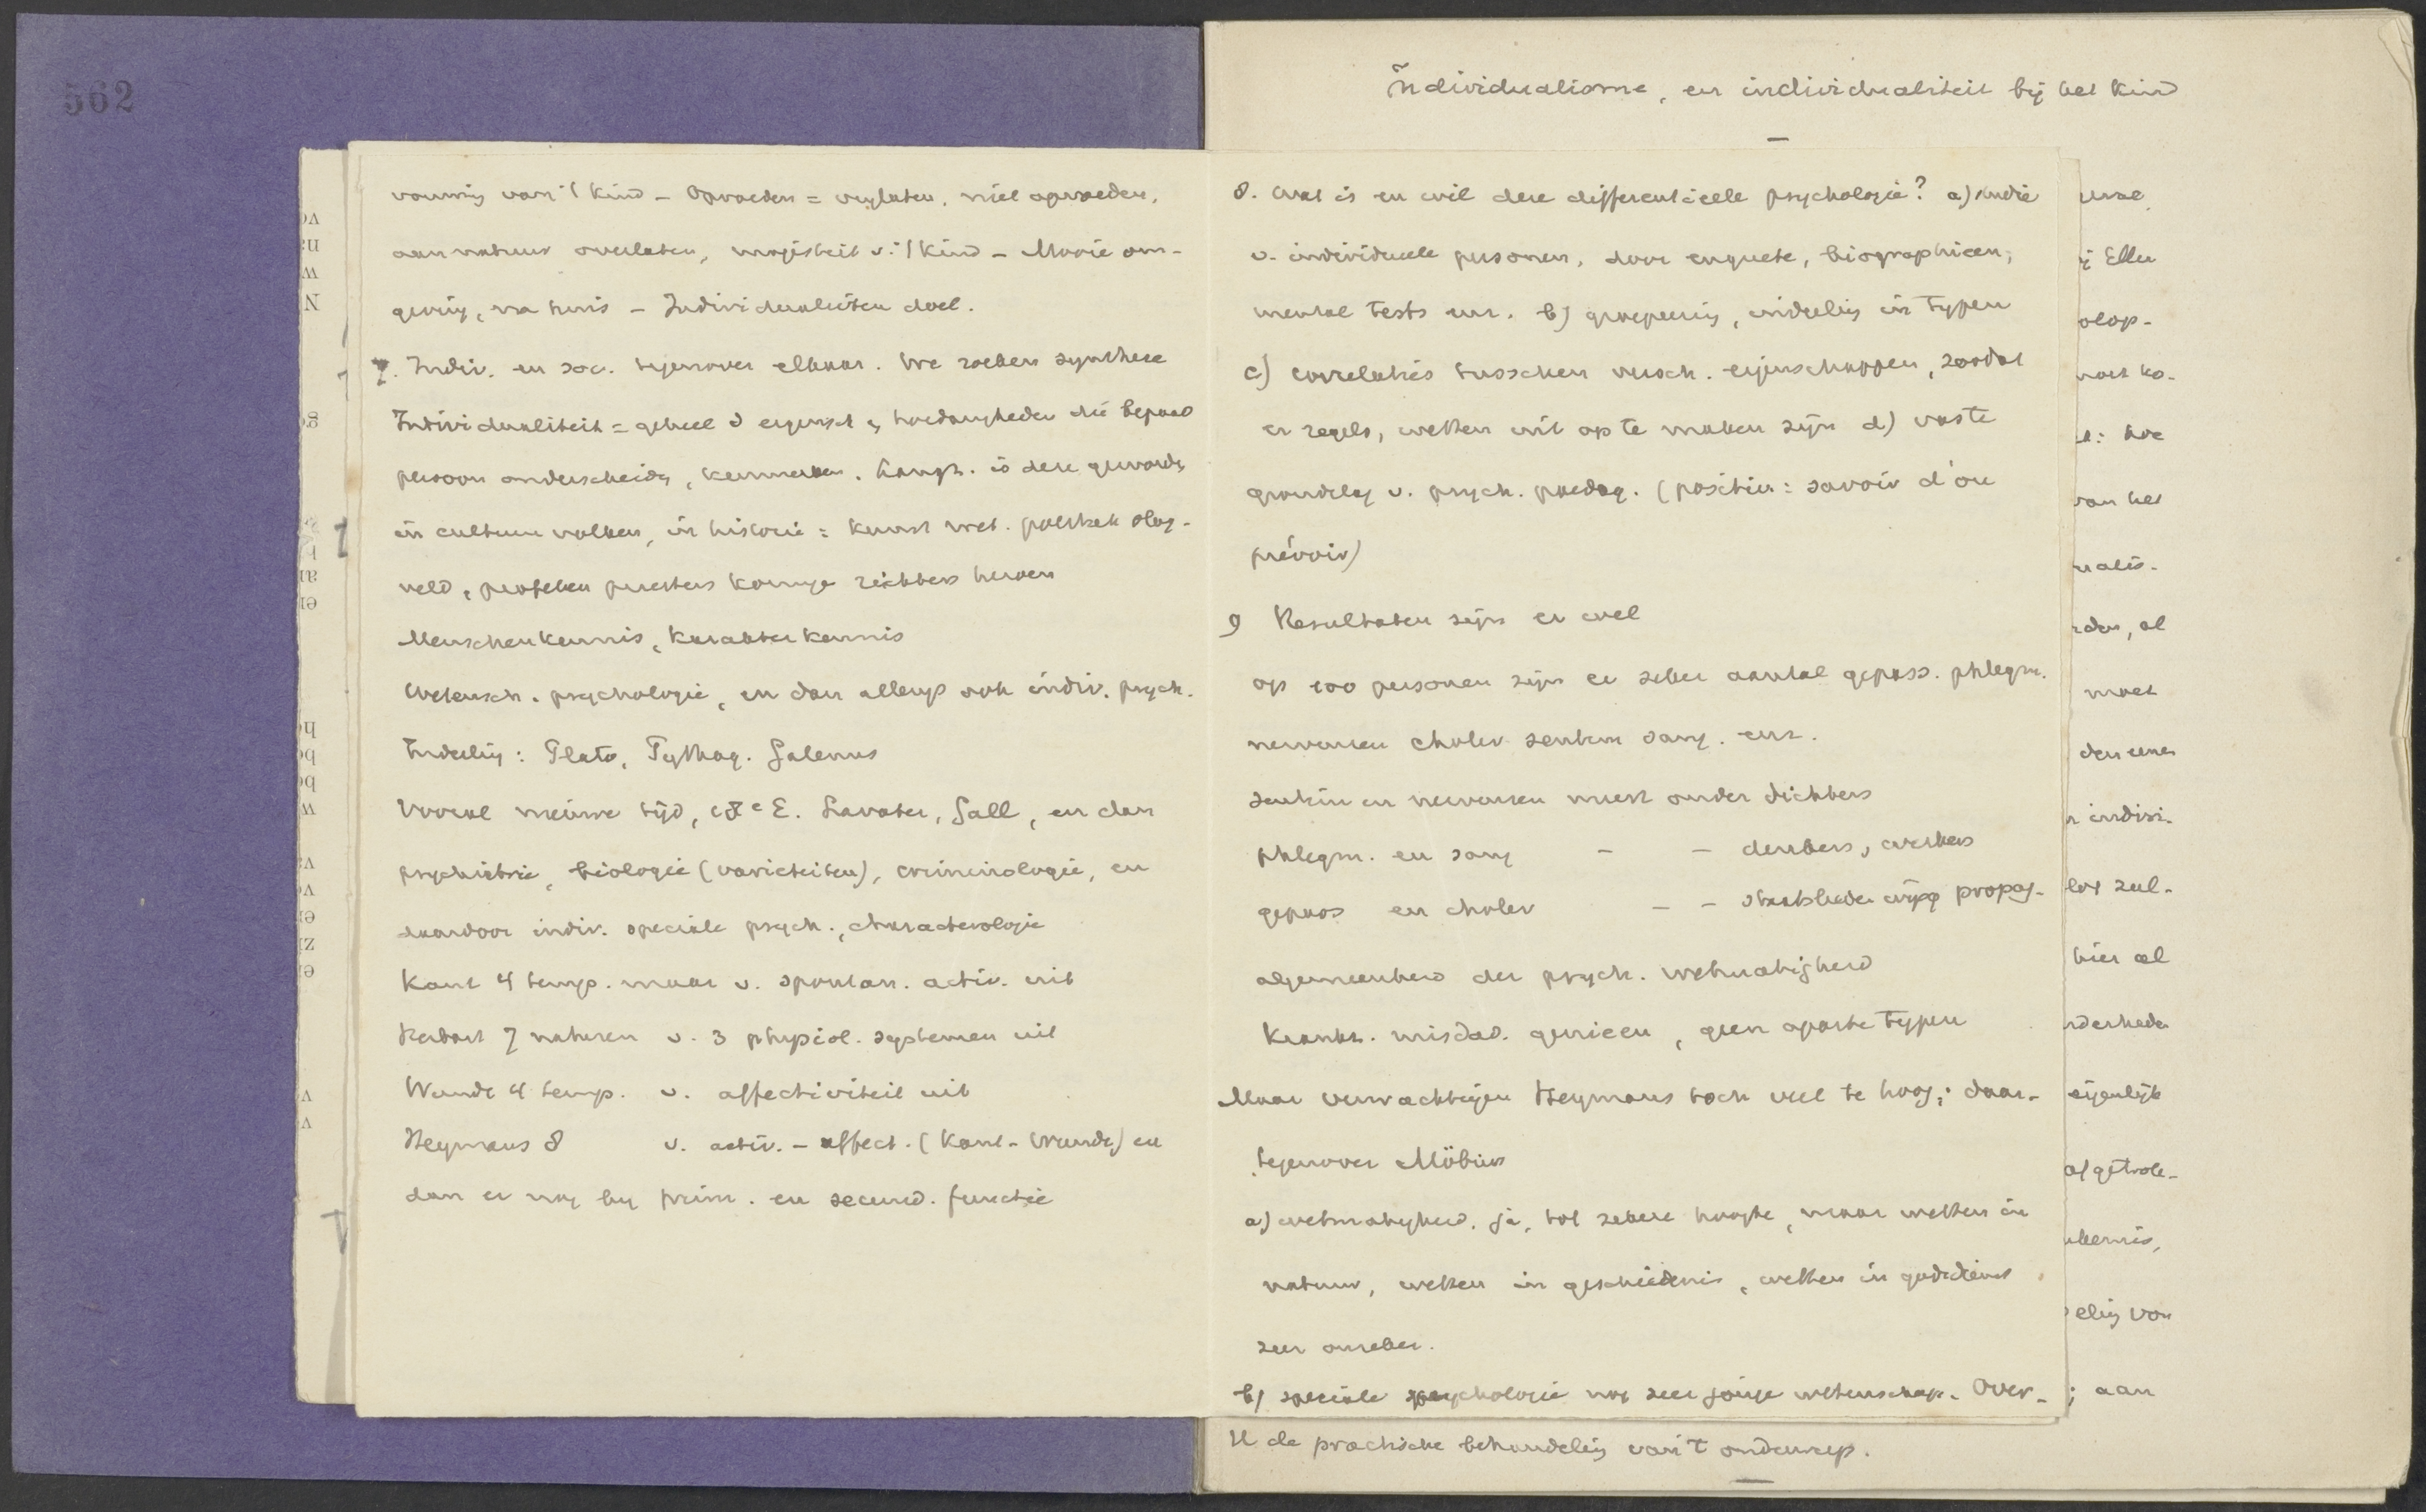 562
Individualisme, en individualiteit bij het kind
vorming van 't kind - Opvoeden = weglaten, niet opvoeden,
aan natuur overlaten, majesteit v. 't kind - Mooie om-
geving, na huis - Individualiteiten doel.
7. Indiv. en soc. tegenover elkaar. We zoeken synthese
Individualiteit = geheel v eigensch en hoedanigheden die bepaald
persoon onderscheiden, kenmerken. Langz. is deze geworden
in cultuur volken, in historie = kunst wet. politiek slag-
veld, profeten priesters koninge rechters heroen
Menschenkennis, karakterkennis
Wetensch. psychologie, en dan allengs ook indiv. psych.
Indeeling: Plato, Pythag. Galenus
Vooral nieuwe tijd, 18e E. Lavater, Gall, en dan
psychiatrie, biologie (varieteiten), criminologie, en
daardoor indiv. speciale psych., characterologie
Kant 4 temp. maar v. spontan. activ. uit
Herbart 7 naturen v. 3 physiol. systemen uit
Wundt 4 temp. v. affectiviteit uit
Heymans 8 v. activ. - affect. (Kant - Wundt) en
dan er nog bij prim. en secund. functie
8. Wat is en wil deze differentieele psychologie? a) studie
v. individueele personen, door enquete, biographieen,
mental tests enz. b) groepeering, indeeling in typen
c) correlaties tusschen versch. eigenschappen, zoodat
er regels, wetten uit op te maken zijn d) vaste
grondslag v. psych. paedag. (positiv: savoir d'ou
prévoir)
9 Resultaten zijn er wel
op 100 personen zijn er zeker aantal gepass. phlegm.
nerveusen choler sentim sang. enz.
sentim en nerveusen meest onder dichters
phlegm. en sang - - denkers, werkers
gepass en choler - - staatslieden wijsg propag-
algemeenheid der psych. wetmatigheid
Krankz. misdad. genieen, geen aparte typen
Maar verwachtingen Heymans toch veel te hoog; daar-
tegenover Möbius
a) wetmatigheid, ja, tot zekere hoogte, maar wetten in
natuur, wetten in geschiedenis, wetten in godsdienst
zeer onzeker.
b) speciale psychologie nog zeer jonge wetenschap. Over-
II de practische behandeling van 't onderwerp.